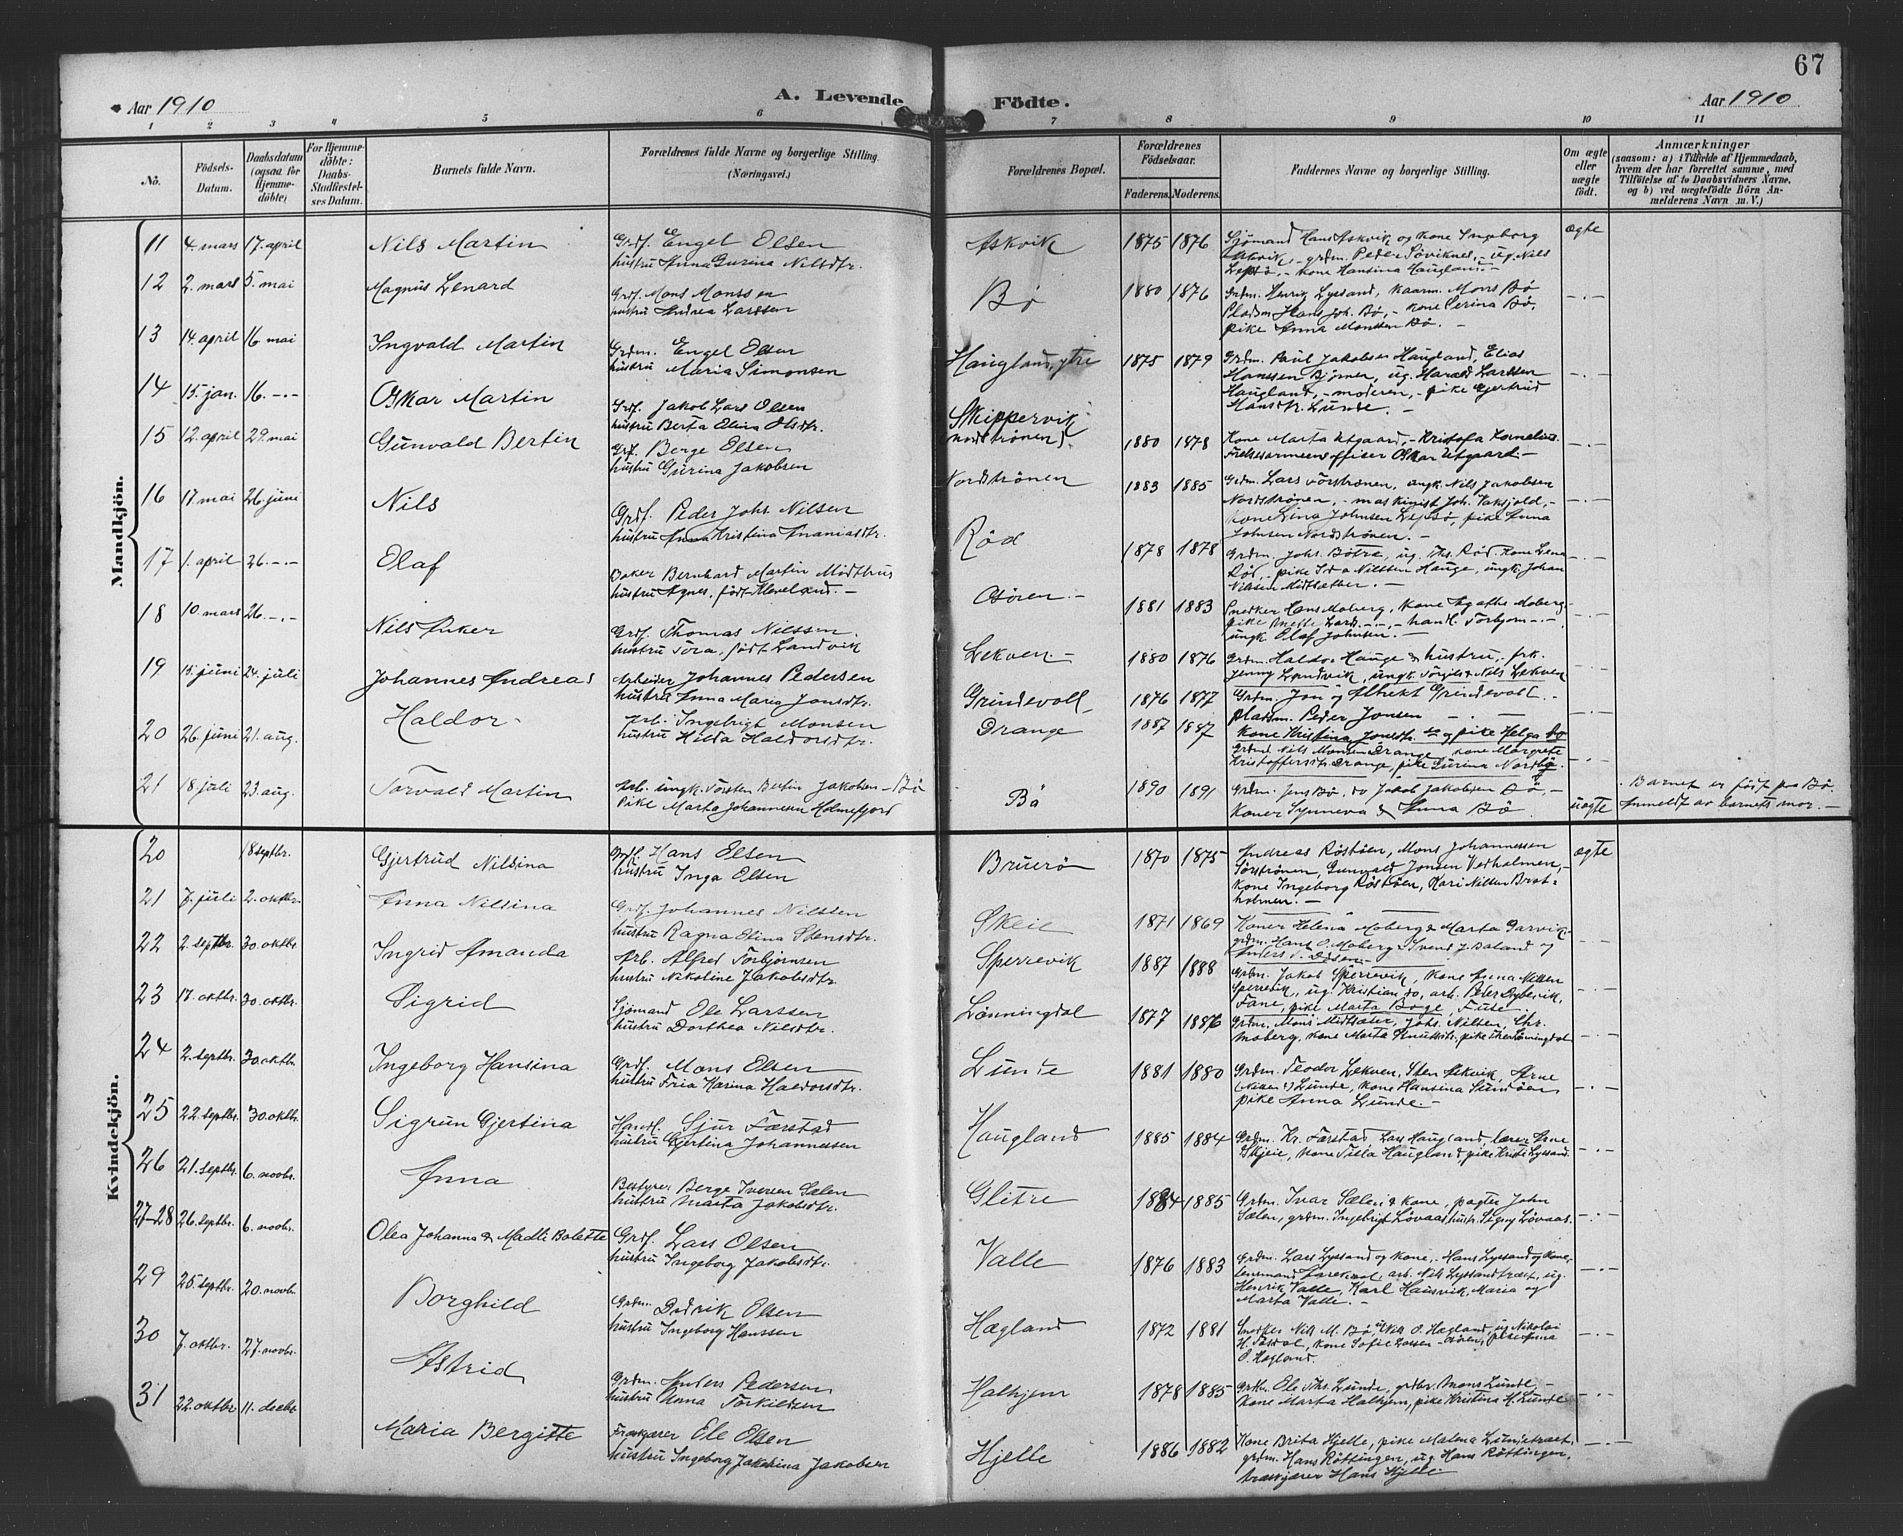 67
Aar 1910
A. Levende Födte.
Aar 1910
1 2 3 4 5 6 7 8 9 10 11
No.
Födsels-Datum.
Daabsdatum (ogsaa for Hjemme-döbte)
For Hjemme-döbte: Daabs-Stadfæstel-ses Datum.
Barnets fulde Navn.
Forældrenes fulde Navne og borgerlige Stilling. (Næringsvei.)
Forældrenes Bopæl.
Forældrenes Födselsaar.
Faderens. Moderens.
Faddernes Navne og borgerlige Stilling.
Om ægte eller uægte födt.
Anmærkninger
(saasom: a) i Tilfælde af Hjemmedaab, hvem der har forrettet samme, med Tilföielse af to Daabsvidners Navne, og b) ved uægtefödte Börn An-melderens Navn m. V.)
Mandkjön.
11 4. mars 17. april Nils Martin Grdf. Engel Olsen
hustru Anna Gurina Nilsdtr. Askvik 1875 1876 Sjömand Hans Askvik og kone Ingeborg
Askvik, grdm. Peder Søviknes, ug. Nils
Lepsø, kone Hansina Haugland. ægte
12 2. mars 5. mai Magnus Lenard Grdf. Mons Monssen
hustru Andrea Larssen Bø 1880 1876 Grdm. Henrig Lyssand, kaarm. Mons Bø
Pladsm Hans Joh. Bø, kone Serina Bø,
pike Anna Monssen Bø. -.-
13 14. april 16 mai Ingvald Martin Grdm. Engel Olsen
hustru Maria Simonsen Haugland, ytre 1875 1879 Grdm. Paul Jakobsen Haugland, Elias
Hanssen Bjørnen, ug. Harald Larssen
Haugland, moderen, pike Gjertrud
Hansdtr. Lunde. -.-
14 15. jan. 16. -.- Oskar Martin Grdf. Jakob Lars Olsen
hustru Berta Elina Olsdtr. Skippervik
(Nordstrønen) 1880 1878 Kone Marta Utgaard, Kristofa Kornelius
Frelsesarmeens officer Oskar Utgaard -.-
15 12. april 29. mai Gunvald Bertin Grf. Berge Olsen
hustru Gurina Jakobsen Nordstrønen 1883 1885 Grdm. Lars Sörstrønen, ungk. Nils Jakobsen
Nordstrønen, maskinist Joh. Vaksjold,
kone Lina Johnsen Lepsø, pike Anna
Johnsen Nordstrønen. -.-
16 17 mai 26. juni Nils Grdf. Peder Johs. Nilsen
hustru Anna Kristina Ananiasdtr. Røed 1878 1878 Grdm. Johs. Bøtra, ug. Ths. Rød, kone Lena
Rød, pike Ida Nilssen Hauge, ungk. Johan
Nilsen Midtsæter. -.-
17 1. april 26. -.- Olaf Baker Bernhard Martin Midthus
hustru Agnes, født Kleveland. Osøren. 1881 1883 Snekker Hans Moberg, kone Agathe Moberg
pike Mette Lars -.-, handl. Torbjørn -.-
ungk. Olaf Johnsen. -.-
18 10. mars 26. -.- Nils Anker Grdf. Thomas Nilssen.
hustru Tora, født Landvik Lekven. 1880 1876 Grdm. Haldor Hauge & hustru, frk.
Jenny Landvik, ungk. Torgils & Nils Lekven -.-
19 15. juni 24. juli Johannes Andreas Arbeider Johannes Pedersen
hustru Anna Maria Jonsdtr. Grindevoll 1876 1877 Grdm. Jon og Albrekt Grindevoll.
pladsm. Peder Jonsen
kone Kristina Jonsdtr. og pike Helga do -.-
20 26. juni 21. aug. Haldor Arb. Ingebrigt Monsen
hustru Hilda Haldorsdtr. Drange 1887 1887 Grdmd Nils Monsen Drange, kone Margrete
Kristoffersdtr. Drange, pike Gurina Nordbø -.-
21 18 juli 23. aug. Torvald Martin Arb. ungk. Torsten Bertin Jakobsen - Bø
Pike Marta Johannesen Holmefjord Bø 1890 1891 Grdm. Jens Bø, do Jakob Jakobsen Bø,
Koner Synneva & Anna Bø uægte Barnet er født paa Bø.
Anmeldt av barnets mor.
Kvindekjön.
20 18 septbr. Gjertrud Nilsina Grdf. Hans Olsen
hustru Inga Olsen Bruerø 1870 1875 Andreas Røstøen, Mons Johannessen
Sørstrønen, Gunvald Jonsen Vedholmen,
kone Ingeborg Røstøen, Kari Nilsen Brat-
holmen. ægte
21 7. juli 2. oktbr. Anna Nilsina Grdf. Johannes Nilssen
hustru Ragna Elina Stensdtr. Skeie 1871 1869 Koner Helena Moberg & Marta Garvik
grdm. Hans O. Moberg & Svend J. Baland og
Anders -.-
22 2. septbr. 30. oktbr. Ingrid Amanda Arb. Alfred Torbjørnsen
hustru Nikoline Jakobsdtr. Sperrevik 1887 1888 Grdm. Jakob Sperrevik, kone Anna Nilsen
Sperrevik, ug. Kristian do, arb. Peder Dybevik,
Fane, pike Marta Borge, Fuse -.-
23 17. oktbr. 30. oktbr. Sigrid Sjömand Ole Larssen
hustru Dorthea Nilsdtr. Lønningdal 1877 1886 Grdm. Mons Midtsæter, Johs. Nilsen, Chr.
Moberg, kone Marta Knutsdtr. pike Thea Lønningdal -.-
24 2. septbr. 30. oktbr. Ingeborg Hansina Grdf. Mons Olsen
hustru Fria Karina Haldorsdtr. Lunde 1881 1880 Grdm. Teodor Lekven, Sten Askvik, Arne
(Nilsen?) Lunde, kone Hansina Sundøen
pike Anna Lunde. -.-
25 22. septbr. 30. oktbr. Sigrun Gjertina Handl. Sjur Færstad
hustru Gjertina Johannessen Haugland 1885 1884 Grdm. Kr. Færstad, Lars Haugland, lærer Arne
Skjeie, kone Tilla Haugland, pike Kristi Lyssand. -.-
26 21. septbr. 6. novbr. Anna Bestyrer Berge Iversen Sælen
hustru Marta Jakobsdtr. Glitre 1884 1885 Grdm. Ivar Sælen & kone, pagter John
Sælen, grdm. Ingebrigt Løvaas, hustr. Signy Løvaas. -.-
27-28 26. septbr. 6. novbr. Olea Johanna & Madli Bolette Grdf. Lars Olsen
hustru Ingeborg Jakobsdtr. Valle 1876 1883 Grdm. Lars Lyssand og kone, Hans Lyssand og kone
lensmand , arb. Nils Lyssandtræet, ug.
Henrik Valle, Karl Hausvik, Maria og
Marta Valle. -.-
29 25. septbr. 20. novbr. Borghild Grdm. Didrik Olsen
hustru Ingeborg Hanssen Hægland 1872 1881 Snekker Nils M. Bø, Nils O. Hægland, ug Nikolai
H. , kone Sofie Larsen Osøren, pike Anna
O. Hægland. -.-
30 7. oktbr. 27. novbr. Astrid Grdm. Anders Pedersen
hustru Anna Torkildsen Halhjem 1878 1885 Grdbr. Ole Ths. Lunde, grdbr. Mons Lunde
Kone Marta Halhjem, pike Kristina M. Lunde -.-
31 22. oktbr 11. decbr Maria Bergitte Fraskjærer Ole Olsen
hustru Ingeborg Jakobina Jakobsen Hjelle 1886 1882 Kone Brita Hjelle, pike Malena Lunetræet,
grdm. Hans Røttingen, ug Hans Røttingen,
træskjærer Hans Hjelle. -.-